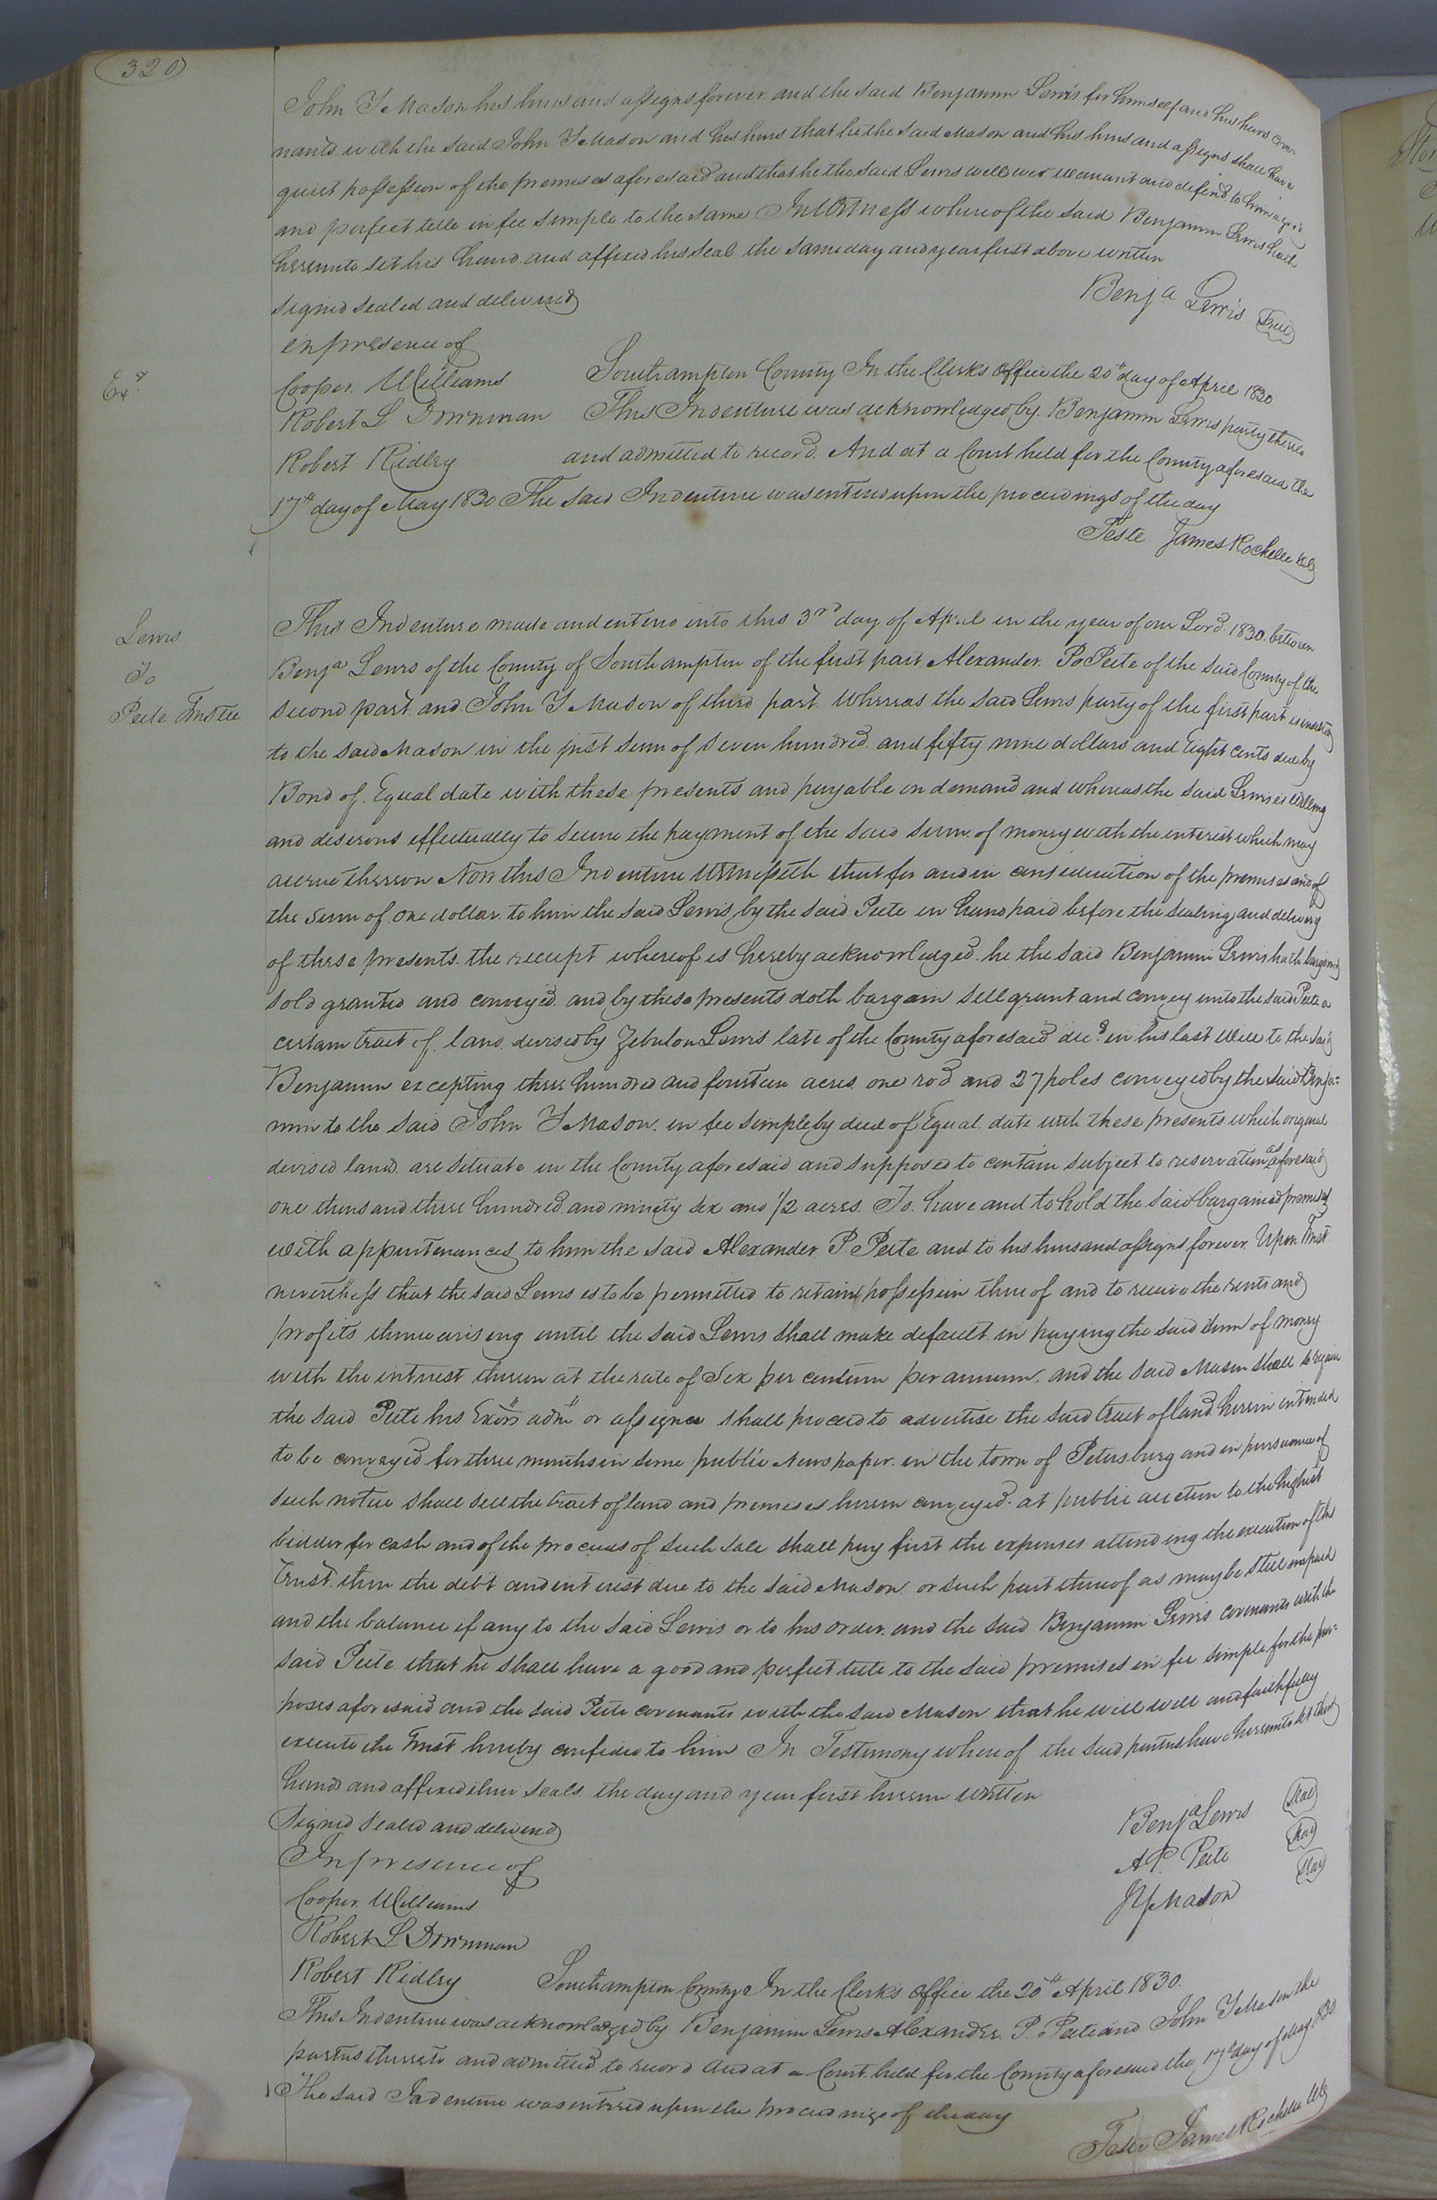 320
John Y Mason his heirs and assigns forever. and the said Benjamin Lewis for himself and his heirs cove-
nants with the said John Y Mason and his heirs that he the said Mason and his heirs and assigns shall have
quiet possession of the premises aforesaid and that he the said Lewis will ever warrant and defend to him a good
and perfect title in fee simple to the same In Witness whereof the said Benjamin Lewis hath
hereunto set his hand and affixed his seal the same day and year first above written
Signed sealed and delivered
Benja Lewis Seal
in presence of
Cooper Williams
Robert L Downman
Robert Ridley
Exd
Southampton County In the Clerks Office the 20th day of April 1830
This Indenture was acknowledged by Benjamin Lewis party thereto
and admitted to record. And at a Court held for the County aforesaid the
17th day of May 1830 The said Indenture was entered upon the proceedings of the day
Teste James Rochelle Clk
Lewis
To
Peete Trustee
This Indenture made and entered into this 3rd day of April in the year of our Lord 1830. between
Benja Lewis of the County of Southampton of the first part Alexander P. Peete of the said County of the
second part and John Y Mason of third part Whereas the said Lewis party of the first part is indebted
to the said Mason in the just sum of seven hundred and fifty nine dollars and Eight cents due by
Bond of Equal date with these presents and payable on demand and whereas the said Lewis is willing
and desirous effectually to secure the payment of the said sum of money with the interest which may
accrue thereon Now this Indenture Witnesseth that for and in consideration of the premises and of
the sum of one dollar to him the said Lewis by the said Peete in hand paid before the sealing and delivery
of these presents the receipt whereof is hereby acknowledged. he the said Benjamin Lewis hath bargained
sold granted and conveyed and by these presents doth bargain sell grant and convey unto the said Peete a
certain tract of land devised by Zebulon Lewis late of the County aforesaid decd in his last Will to the said
Benjamin excepting three hundred and fourteen acres one rod and 27 poles conveyed by the said Benja-
min to the said John Y Mason in fee simple by deed of Equal date with these presents which original
devised lands are situate in the County aforesaid and supposed to contain subject to reservation as aforesaid
one thousand three hundred and ninety six and 1/2 acres. To have and to hold the said bargained premises
with appurtenances to him the said Alexander P. Peete and to his heirs and assigns forever. Upon Trust
nevertheless that the said Lewis is to be permitted to retain possession thereof and to receive the rents and
profits thence arising until the said Lewis shall make default in paying the said sum of money
with the interest thereon at the rate of Six per centum per annum. and the said Mason shall require
the said Peete his Exors admrs or assignee shall proceed to advertise the said tract of land herein intended
to be conveyed for three months in some public Newspaper in the town of Petersburg and in pursuance of
such notice shall sell the tract of land and premises herein conveyed at public auction to the highest
bidder for cash and of the proceeds of such sale shall pay first the expenses attending the execution of this
Trust then the debt and interest due to the said Mason or such part thereof as may be still unpaid
and the balance if any to the said Lewis or to his order. and the said Benjamin Lewis covenants with the
said Peete that he shall have a good and perfect title to the said premises in fee simple for the pur-
poses aforesaid and the said Peete covenants with the said Mason that he will well and faithfully
execute the Trust hereby confided to him In Testimony whereof the said parties have hereunto set their
hands and affixed their seals the day and year first herein written
Signed sealed and delivered
In presence of
Cooper Williams
Robert L Downman
Robert Ridley
Benja Lewis Seal
A P. Peete Seal
J Y Mason Seal
Southampton County In the Clerk's Office the 20th April 1830.
This Indenture was acknowledged by Benjamin Lewis Alexander P. Peete and John Y Mason the
parties thereto and admitted to record And at a Court held for the County aforesaid the 17th day of May 1830
The said Indenture was entered upon the proceedings of the day
Teste James Rochelle Clk